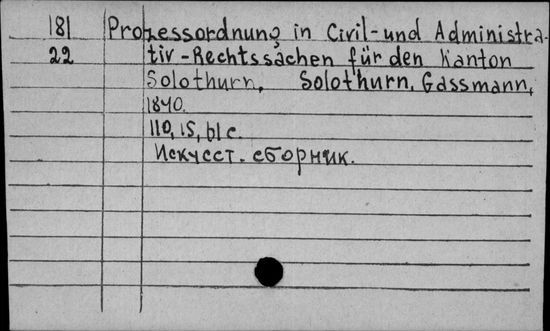 181 Prozessordnung in Civil-und Administra-
22 tiv-Rechtssachen für den Kanton
Solothurn, Solothurn, Gassmann,
1840.
110, IS, bl c.
Искусст. сборник.